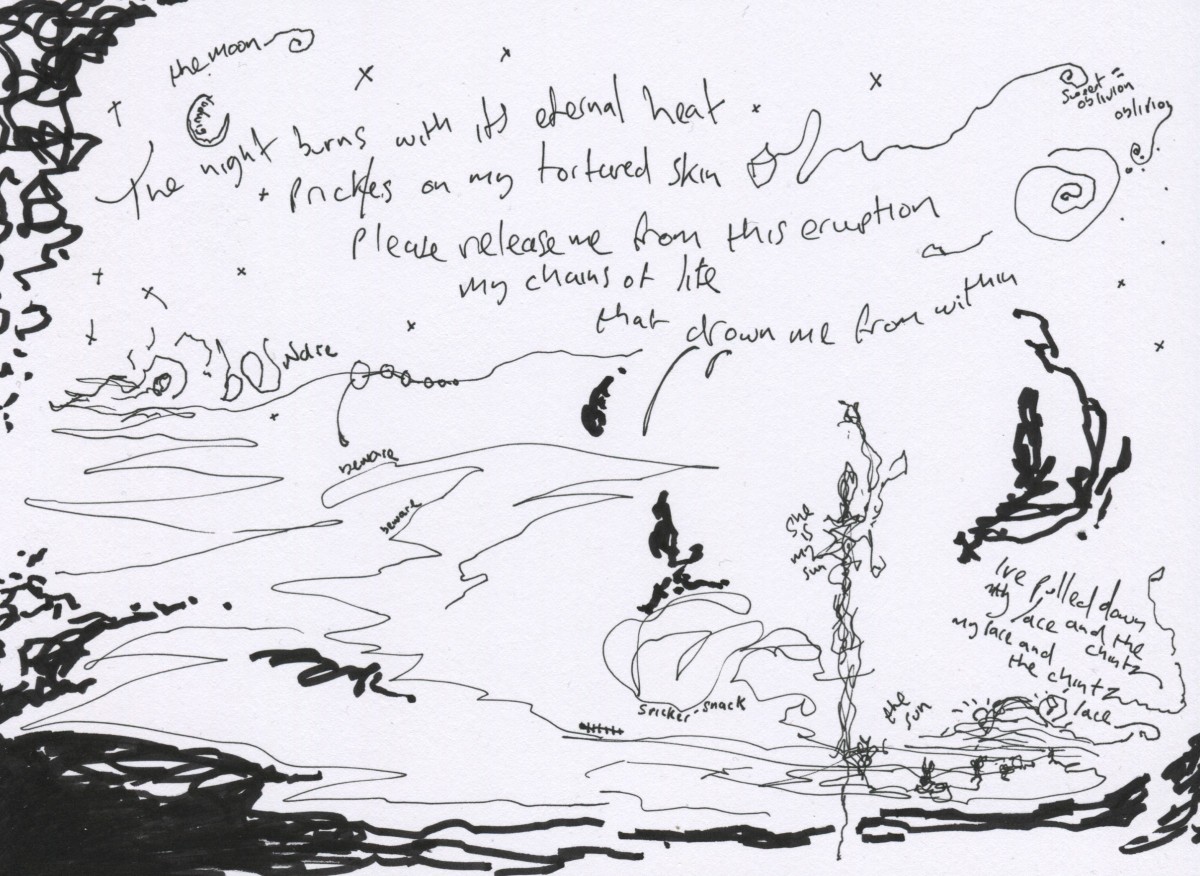 the moon
The night burns with its eternal heat
prickles on my tortured skin
Sweet =
oblivion
oblivion
Please release me from this eruption
my chains of life
that drown me from within
Noise
beware
beware
she
is
my
sun
I've pulled down
my lace and the
my lace and chintz
the chintz
lace
the
sun
snicker-snack